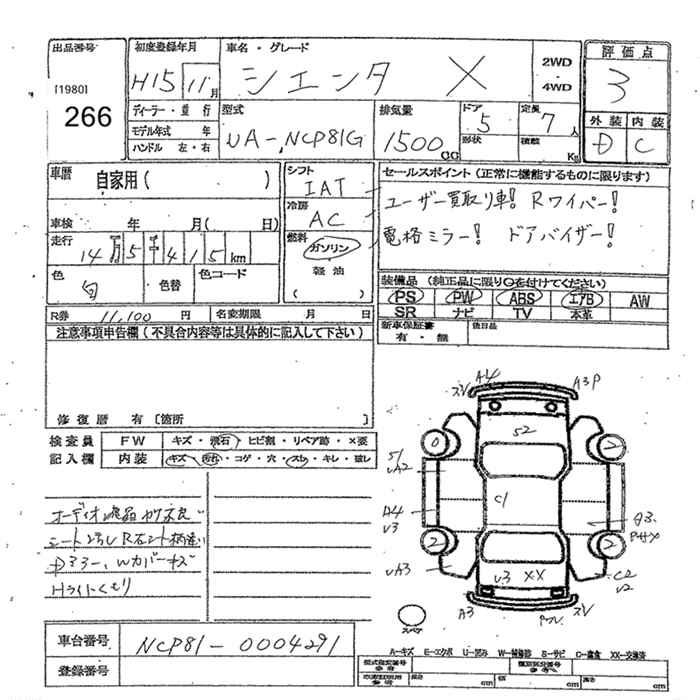 出品番号
[1980]
266
初度登録年月
H15 11月
車名・グレード
シエンタ X
2WD
4WD
評価点
3
外装 内装
D C
ディーラー・並行
モデル年式 年
ハンドル 左・右
型式
UA-NCP81G
排気量
1500cc
ドア
5
形状
定員
7人
積載 Kg
車歴
自家用( )
車検 年 月( 日)
走行
14万5千415km
色
白
色替
色コード
シフト
IAT
冷房
AC
燃料
ガソリン
軽油
セールスポイント(正常に機能するものに限ります)
ユーザー買取り車! Rワイパー!
電格ミラー! ドアバイザー!
装備品(純正品に限り〇を付けてください)
PS PW ABS エアB AW
SR ナビ TV 本革
新車保証書
有・無
後日品
R券 11,100 円
名変期限 月 日
注意事項申告欄(不具合内容等は具体的に記入して下さい)
修復歴 有〔箇所 〕
検査員
記入欄
FW キズ・飛石・ヒビ割・リペア跡・×要
内装 キズ・汚れ・コゲ・穴・スレ・キレ・破レ
オーディオ液晶
シート
Dミラー、Wカバーキズ
Hライトくもり
A4
A3P
S2
S1
UA2
0
2
C1
A4
U3
A3
2
2
UA3
U3
XX
C2
U2
A3
スペア
A-キズ E-エクボ U-凹み W-補修跡 S-サビ C-腐食 XX-交換済
車台番号
NCP81-0004291
登録番号
型式指定番号
類別区分番号
長さ cm
幅 cm
高さ cm